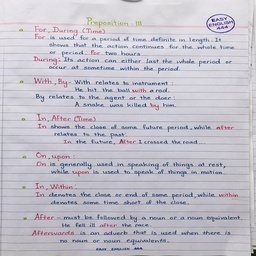 Preposition - III
EASY ENGLISH 444
For, During (Time)
For is used for a period of time definite in length. It
shows that the action continues for the whole time
or period: for two hours
During: Its action can either last the whole period or
occur at sometime within the period.
With, By: With relates to instrument.
He hit the ball with a rod.
By relates to the agent or the doer:
A snake was killed by him.
In, After (Time)
In shows the close of some future period, while after
relates to the past:
In the future, After I crossed the road
On, upon:
On is generally used in speaking of things at rest,
while upon is used to speak of things in motion.
In, Within:
In denotes the close or end of some period, while within
denotes some time short of the close.
After - must be followed by a noun or a noun equivalent.
He fell ill after the race.
Afterwards is an adverb that is used when there is
no noun or noun equivalents.
EASY ENGLISH 444